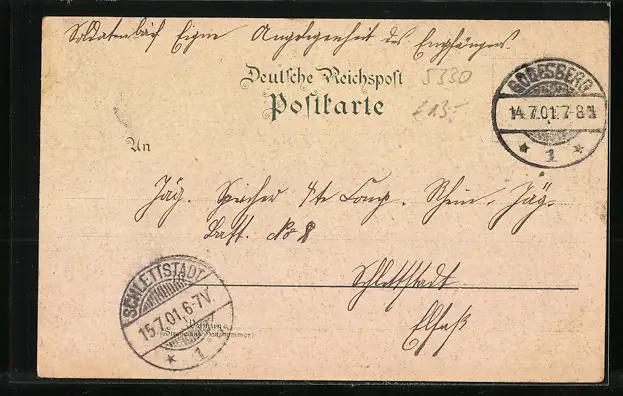 Soldatenbrief Eigne Angelegenheit des Empfängers.
Deutsche Reichspost
Postkarte
5330
€135
GODESBERG
14.7.01.7-8N
* 1 *
An
Jäg. Speicher 4te Comp. Rhein. Jäg.
Batt. No 8
Schlettstadt
Elsaß
SCHLETTSTADT
15.7.01.6-7V.
* 1
Wohnung
(Straße und Hausnummer)